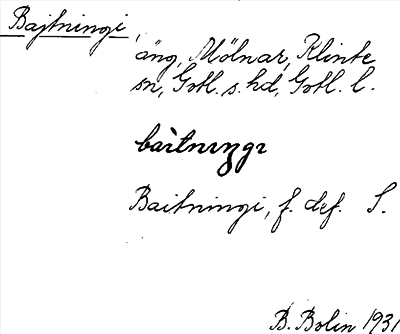 Bajtningi,
äng, Mölnar, Klinte
sn, Gotl. s. hd, Gotl. l.
bàitnıŋgı
Baitningi, f. def. S.
B. Bolin 1931